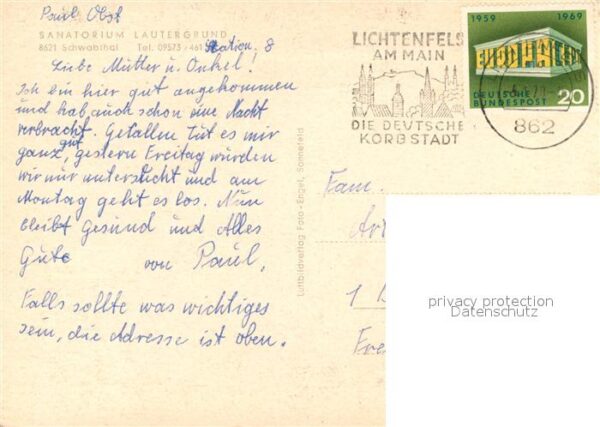 Paul Obst
SANATORIUM LAUTERGRUND
8621 Schwabthal Tel. 09573/461 Station. 8
Liebe Mutter u. Onkel!
Ich bin hier gut angekommen
und hab auch schon eine Nacht
verbracht. Gefallen tut es mir
ganz gut, gestern Freitag wurden
wir nur untersucht und am
Montag geht es los. Nun
bleibt Gesund und Alles
Gute von Paul,
Falls sollte was wichtiges
sein, die Adresse ist oben.
Luftbildverlag Foto-Engel, Sonnefeld
LICHTENFELS
AM MAIN
DIE DEUTSCHE
KORBSTADT
1959 1969
EUROPA CEPT
DEUTSCHE
BUNDESPOST 20
862
Fam.
1
privacy protection
Datenschutz